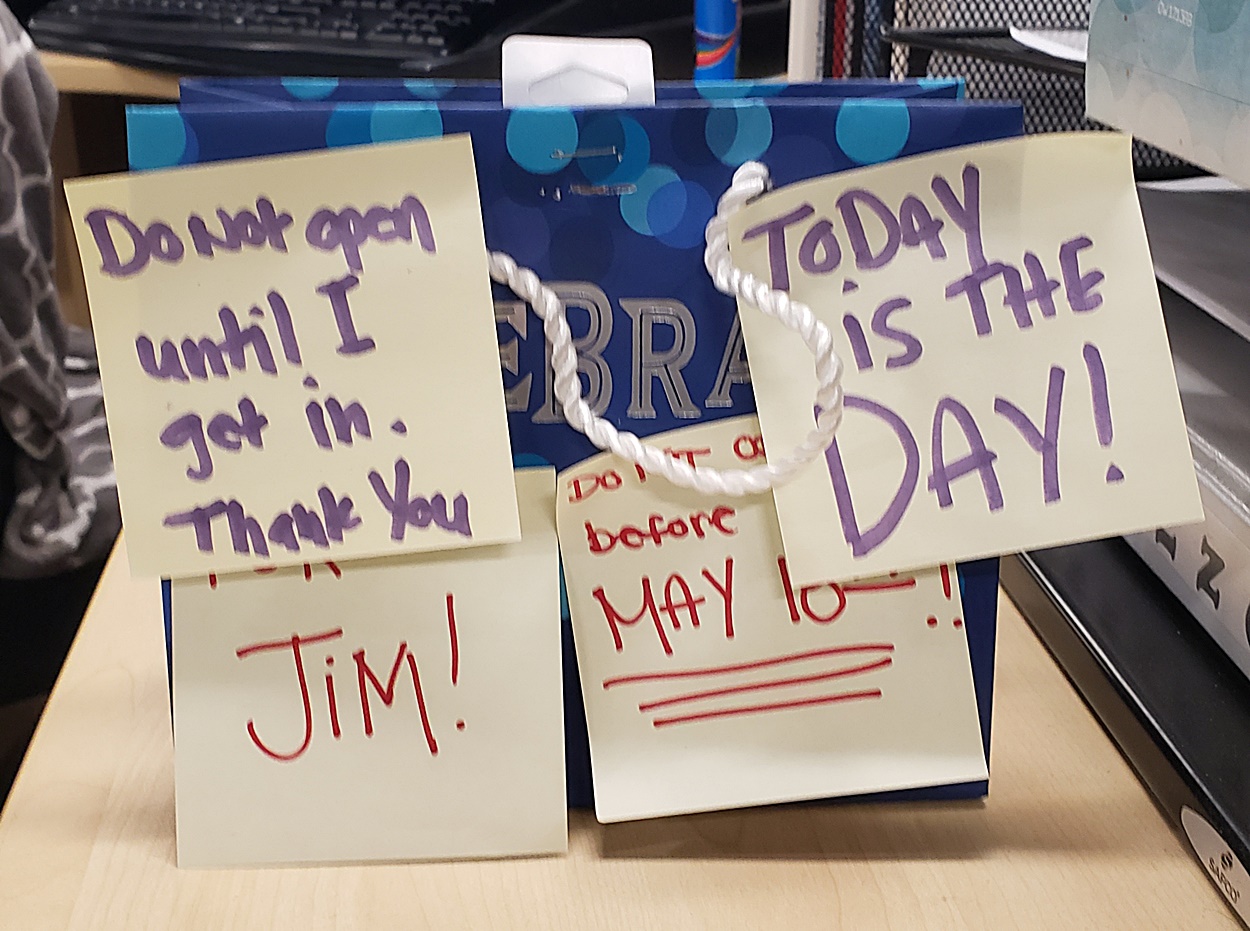 Do Not open
until I
get in.
Thank You
TODAY
is THE
DAY!
EBRA
JiM!
DON'T
before
MAY 10
!
SAFCO